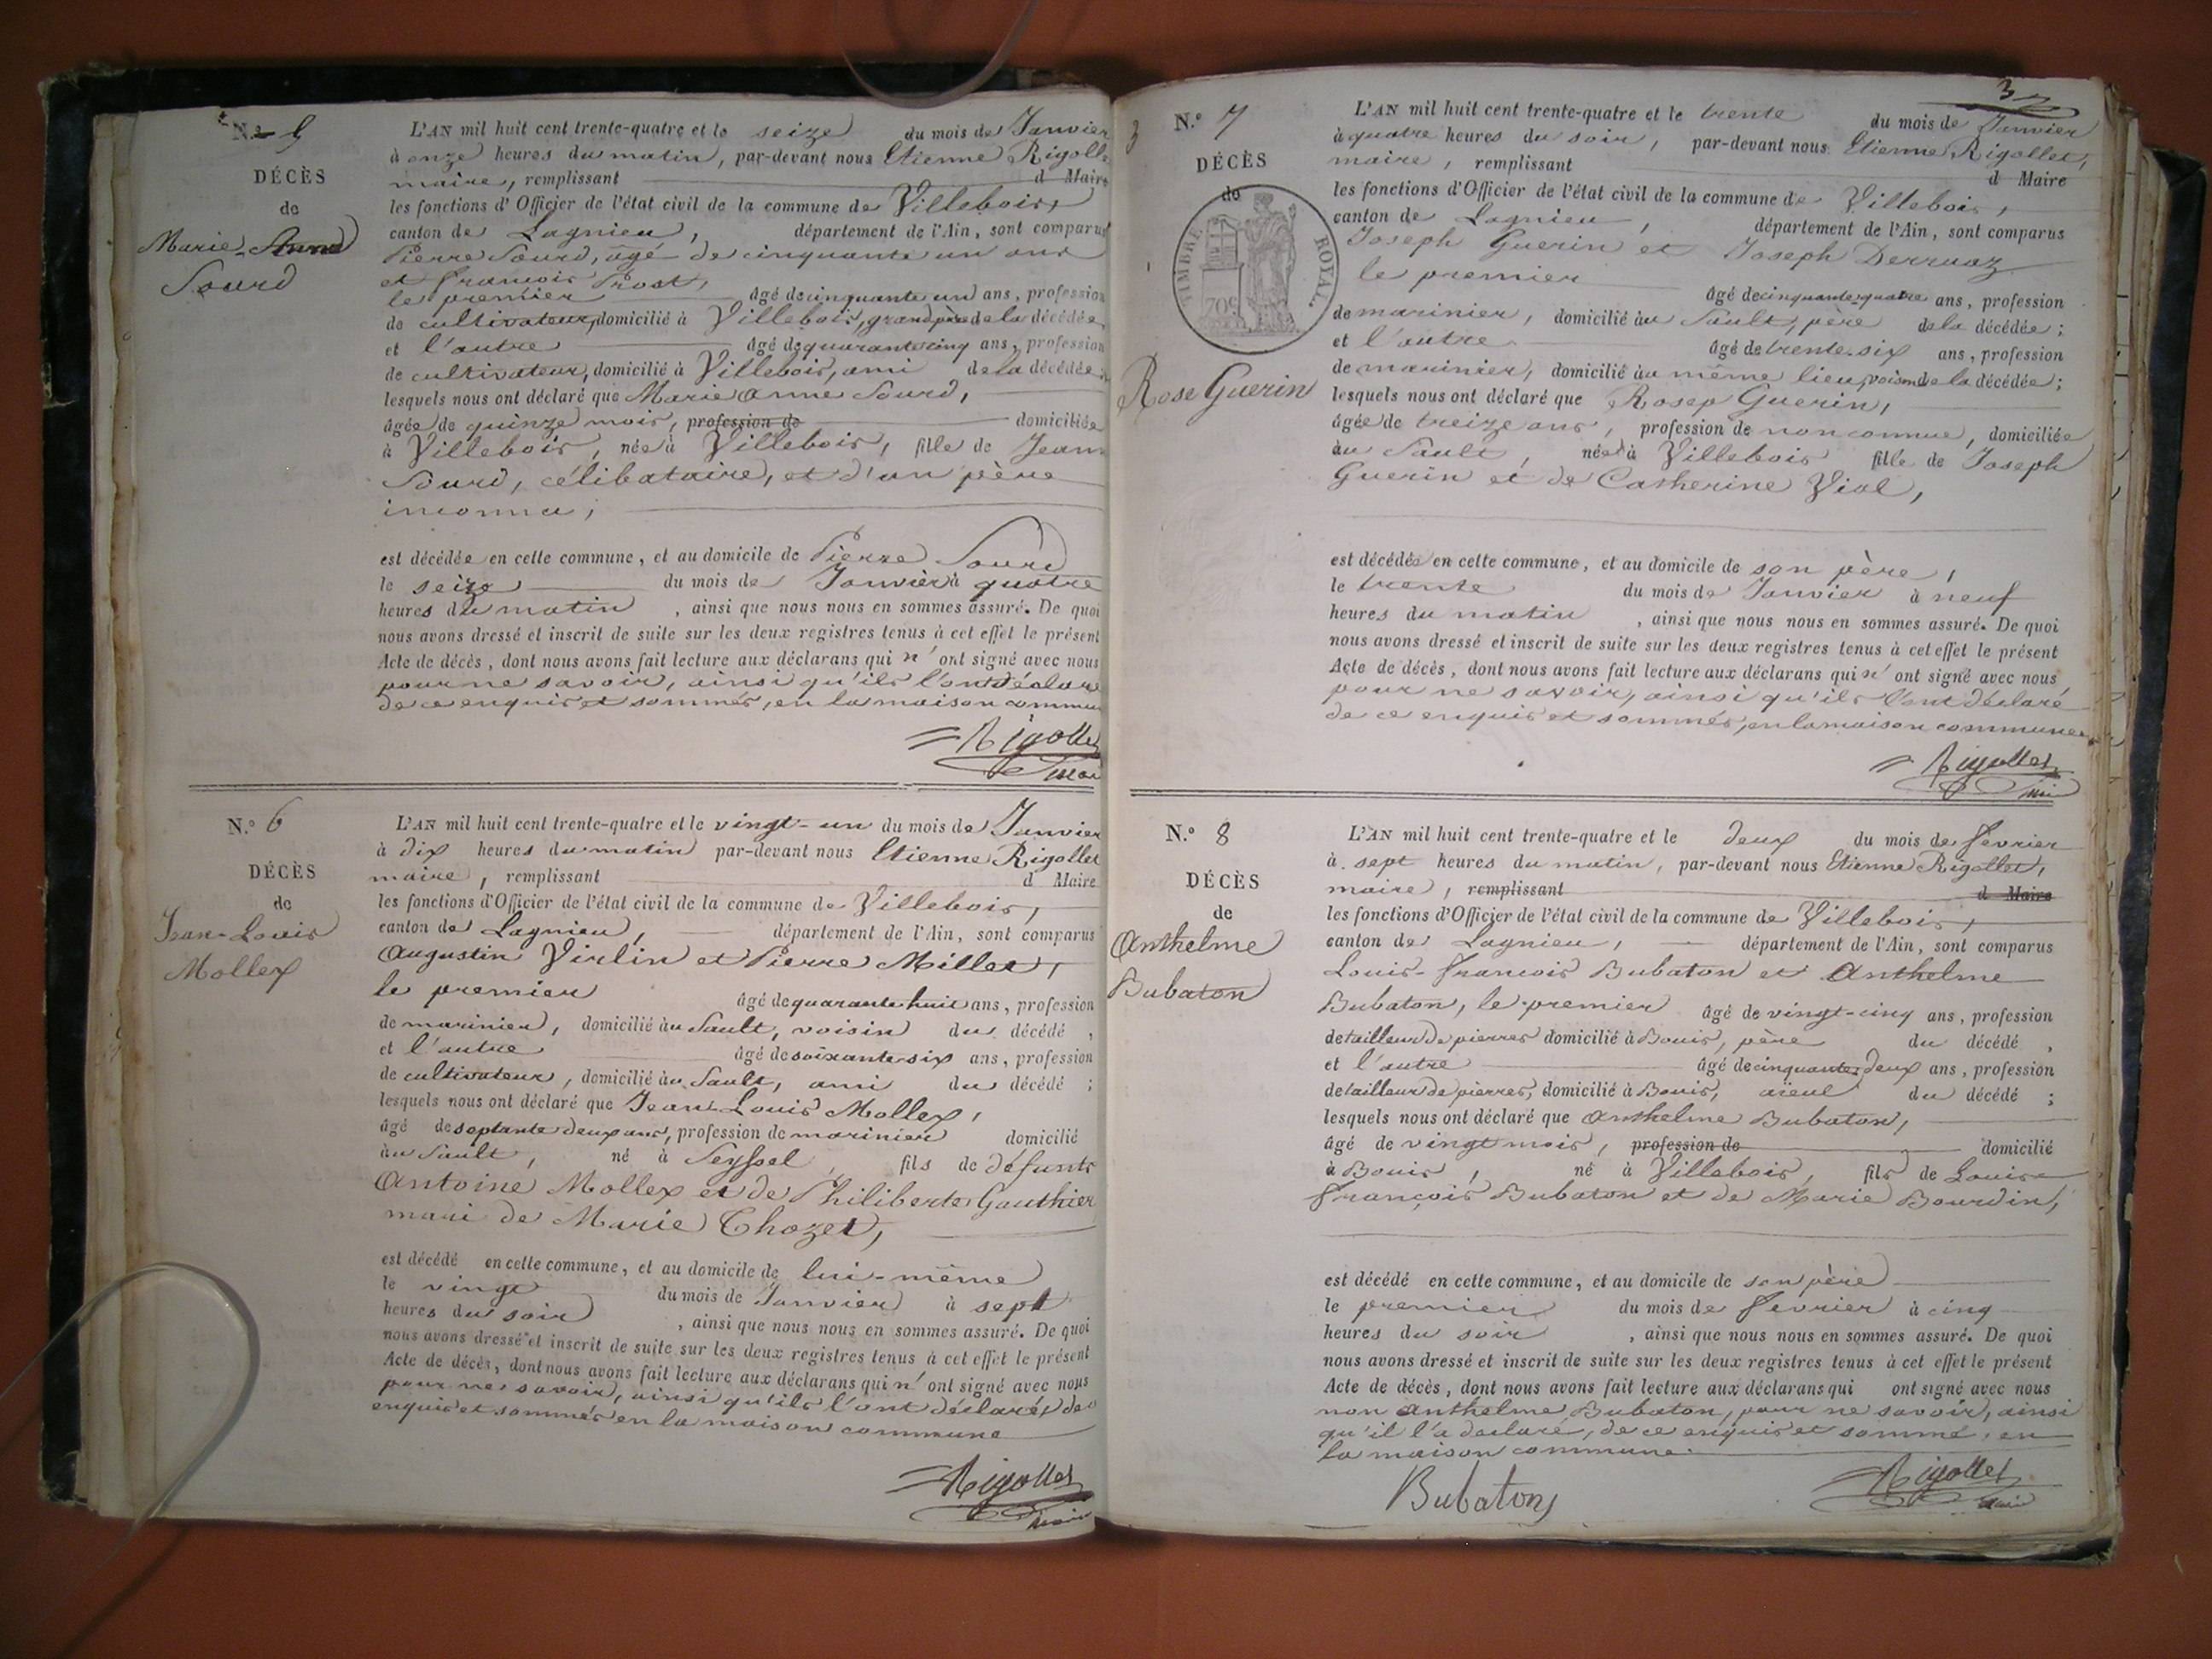 N.º 5
DÉCÈS
de
Marie-Anne
Sourd
L'AN mil huit cent trente-quatre et le seize du mois de Janvier
à onze heures du matin, par-devant nous Etienne Rigollet
maire, remplissant d Maire
les fonctions d'Officier de l'état civil de la commune de Villebois,
canton de Lagnieu, département de l'Ain, sont comparus
Pierre Sourd, âgé de cinquante un ans
et francois Prost,
le premier âgé de cinquante un ans, profession
de cultivateur, domicilié à Villebois, grand père de la décédée,
et l'autre âgé de quarante cinq ans, profession
de cultivateur, domicilié à Villebois, ami de la décédée;
lesquels nous ont déclaré que Marie Anne Sourd,
âgée de quinze mois, profession de domiciliée
à Villebois, née à Villebois, fille de Jeane
Sourd, célibataire, et d'un père
inconnu,
est décédée en cette commune, et au domicile de Pierre Sourd
le seize du mois de Janvier à quatre
heures du matin, ainsi que nous nous en sommes assuré. De quoi
nous avons dressé et inscrit de suite sur les deux registres tenus à cet effet le présent
Acte de décès, dont nous avons fait lecture aux déclarans qui n'ont signé avec nous
pour ne savoir, ainsi qu'ils l'ont déclaré
de ce enquis et sommés, en la maison commune
Rigollet
maire
N.º 6
DÉCÈS
de
Jean-Louis
Mollex
L'AN mil huit cent trente-quatre et le vingt-un du mois de Janvier
à dix heures du matin par-devant nous Etienne Rigollet
maire, remplissant d Maire
les fonctions d'Officier de l'état civil de la commune de Villebois,
canton de Lagnieu, département de l'Ain, sont comparus
Augustin Virlin et Pierre Millet,
le premier âgé de quarante huit ans, profession
de marinier, domicilié au Sault, voisin du décédé,
et l'autre âgé de soixante-six ans, profession
de cultivateur, domicilié au Sault, ami du décédé;
lesquels nous ont déclaré que Jean Louis Mollex,
âgé de soptante deux ans, profession de marinier domicilié
au Sault, né à Seyssel, fils de défunts
Antoine Mollex et de Philiberte Gauthier
mari de Marie Chozet,
est décédé en cette commune, et au domicile de lui-même
le vingt du mois de Janvier à sept
heures du soir, ainsi que nous nous en sommes assuré. De quoi
nous avons dressé et inscrit de suite sur les deux registres tenus à cet effet le présent
Acte de décès, dont nous avons fait lecture aux déclarans qui n'ont signé avec nous
pour ne savoir, ainsi qu'ils l'ont déclaré, de ce
enquis et sommés en la maison commune
Rigollet
maire
37
N.º 7
DÉCÈS
de
TIMBRE ROYAL.
70c
Rose Guerin
L'AN mil huit cent trente-quatre et le trente du mois de Janvier
à quatre heures du soir, par-devant nous Etienne Rigollet,
maire, remplissant d Maire
les fonctions d'Officier de l'état civil de la commune de Villebois,
canton de Lagnieu, département de l'Ain, sont comparus
Joseph Guerin et Joseph Derruaz
le premier âgé de cinquante-quatre ans, profession
de marinier, domicilié au Sault, père de la décédée;
et l'autre âgé de trente-six ans, profession
de marinier, domicilié au même lieu, voisin de la décédée;
lesquels nous ont déclaré que Rose Guerin,
âgée de treize ans, profession de non connue, domiciliée
au Sault, née à Villebois fille de Joseph
Guerin et de Catherine Vial,
est décédée en cette commune, et au domicile de son père,
le trente du mois de Janvier à neuf
heures du matin, ainsi que nous nous en sommes assuré. De quoi
nous avons dressé et inscrit de suite sur les deux registres tenus à cet effet le présent
Acte de décès, dont nous avons fait lecture aux déclarans qui n'ont signé avec nous
pour ne savoir, ainsi qu'ils l'ont déclaré
de ce enquis et sommés, en la maison commune
Rigollet
N.º 8
DÉCÈS
de
Anthelme
Bubaton
L'AN mil huit cent trente-quatre et le deux du mois de février
à sept heures du matin, par-devant nous Etienne Rigollet,
maire, remplissant d Maire
les fonctions d'Officier de l'état civil de la commune de Villebois,
canton de Lagnieu, département de l'Ain, sont comparus
Louis-francois Bubaton et Anthelme
Bubaton, le premier âgé de vingt-cinq ans, profession
de tailleur de pierres domicilié à Bouis, père du décédé,
et l'autre âgé de cinquante deux ans, profession
de tailleur de pierres, domicilié à Bouis, aïeul du décédé;
lesquels nous ont déclaré que Anthelme Bubaton,
âgé de vingt mois, profession de domicilié
à Bouis, né à Villebois, fils de Louis
françois Bubaton et de Marie Bourdin,
est décédé en cette commune, et au domicile de son père
le premier du mois de fevrier à cinq
heures du soir, ainsi que nous nous en sommes assuré. De quoi
nous avons dressé et inscrit de suite sur les deux registres tenus à cet effet le présent
Acte de décès, dont nous avons fait lecture aux déclarans qui ont signé avec nous
non Anthelme Bubaton, pour ne savoir, ainsi
qu'il l'a déclaré, de ce enquis et sommé, en
la maison commune.
Bubaton
Rigollet
maire